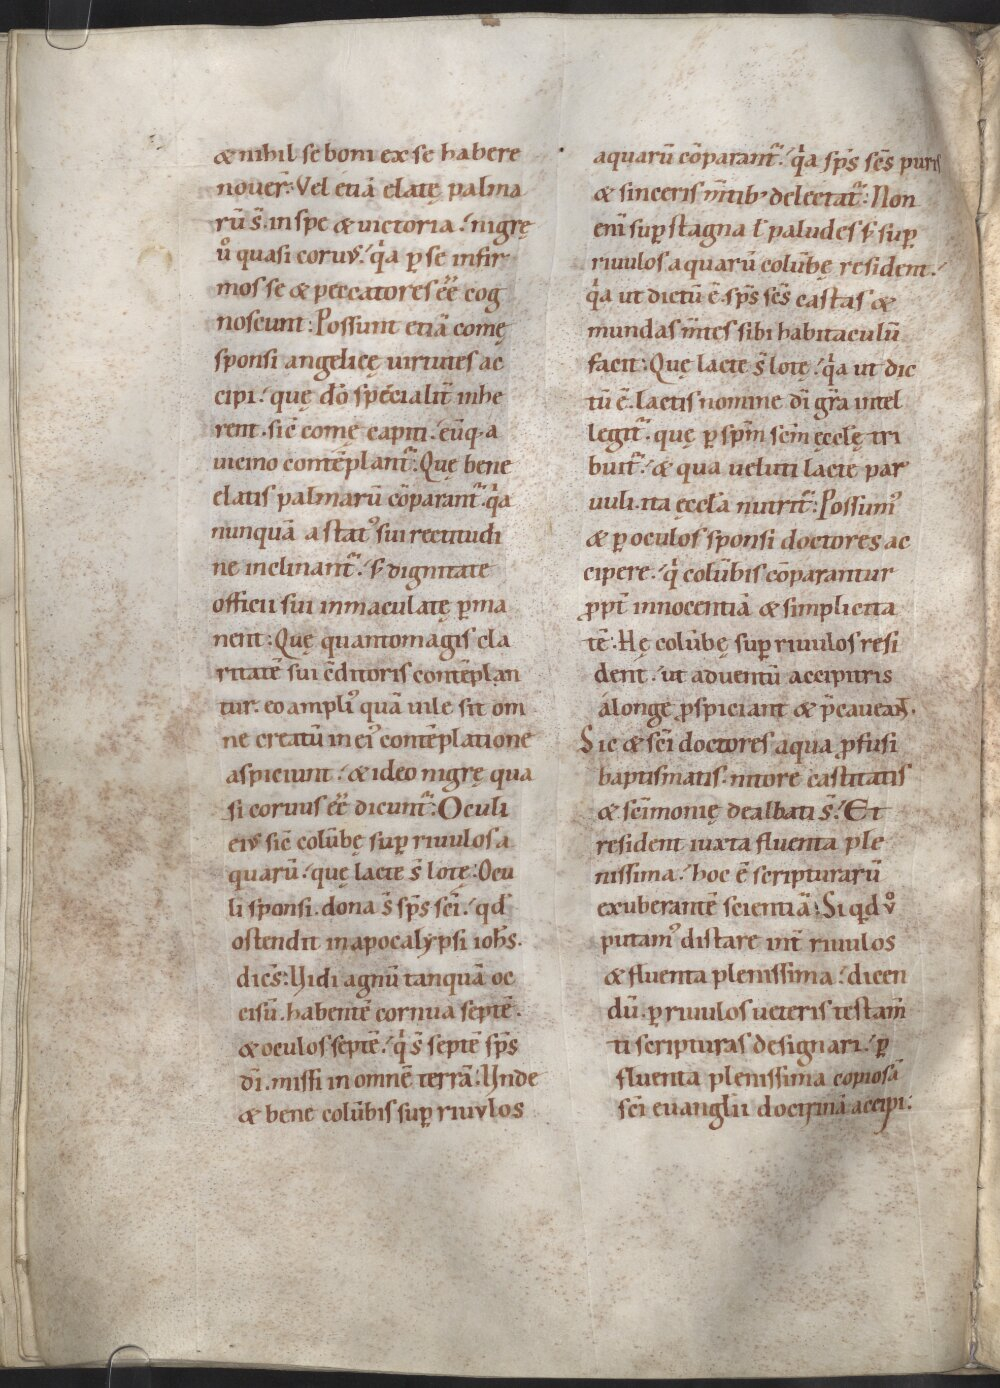 & nihil se boni ex se habere
nouer̄: Vel etiā elatę palma
rū s̄. in spe & uictoria. nigrę
ů quasi coruꝰ. q̍a p̱ se infir
mos se & peccatores eē cog
noscunt: Possunt etiā comę
sponsi angelicę uirtutes ac
cipi. quę dō speciali᷑ inhe
rent. sic̄ comę capiti. eūq; a
uicino contēplant᷑: Quę bene
elatis palmarū cōparant᷑. q̍a
nunquā a statꝰ sui rectitudi
ne inclinant᷑. s; dignitate
officii sui inmaculatę p̱ma
nent: Quę quanto magis cla
ritatē sui cditoris contēplan
tur. eo ampliꝰ quā uile sit om
ne creatū in eiꝰ contēplatione
aspiciunt. & ideo nigrę qua
si coruus eē dicunt᷑: Oculi
eiꝰ sic̄ colūbę sup̱ riuulos a
quarū. quę lacte s̄ lotę: Ocu
li sponsi. dona s̄ sp̄s sc̄i. qd̄
ostendit in apocalypsi ioh̄s.
dicēs: Uidi agnū tanquā oc
cisū. habentē cornua septē.
& oculos septē. q̍ s̄ septē sp̄s
dī. missi in omnē terrā: Unde
& bene colūbis sup̱ riuulos
aquarū cōparant᷑. q̍a sp̄s sc̄s puris
& sinceris m̄tib; delectat᷑: Non
eni sup̱ stagna ł paludes s; sup̱
riuulos aquarū colūbę resident.
q̍a ut dictū ē. sp̄s sc̄s castas &
mundas m̄tes sibi habitaculū
facit: Quę lacte s̄ lotę. q̍a ut dic
tū ē. lactis nomine dī gr̄a intel
legit᷑. quę p̱ sp̄m sc̄m ęccłę tri
buit᷑. & qua ueluti lacte par
uuli. ita ęccła nutrit᷑: Possumꝰ
& p̱ oculos sponsi doctores ac
cipere. q̍ colūbis cōparantur
ꝓpt᷑ innocentiā & simplicita
tē: Hę colūbę sup̱ riuulos resi
dent. ut aduentū accipitris
a longe ꝓspiciant & p̄caueant.
Sic & sc̄i doctores aqua ꝓfusi
baptismatis. nitore castitatis
& sc̄imonię dealbati s̄. Et
resident iuxta fluenta ple
nissima. hoc ē scripturarū
exuberantē scientiā: Si qd ů
putamꝰ distare int᷑ riuulos
& fluenta plenissima. dicen
dū. p̱ riuulos ueteris testam̄
ti scripturas designari. p̱
fluenta plenissima copiosā
sc̄i euanglii doctrinā accipi: